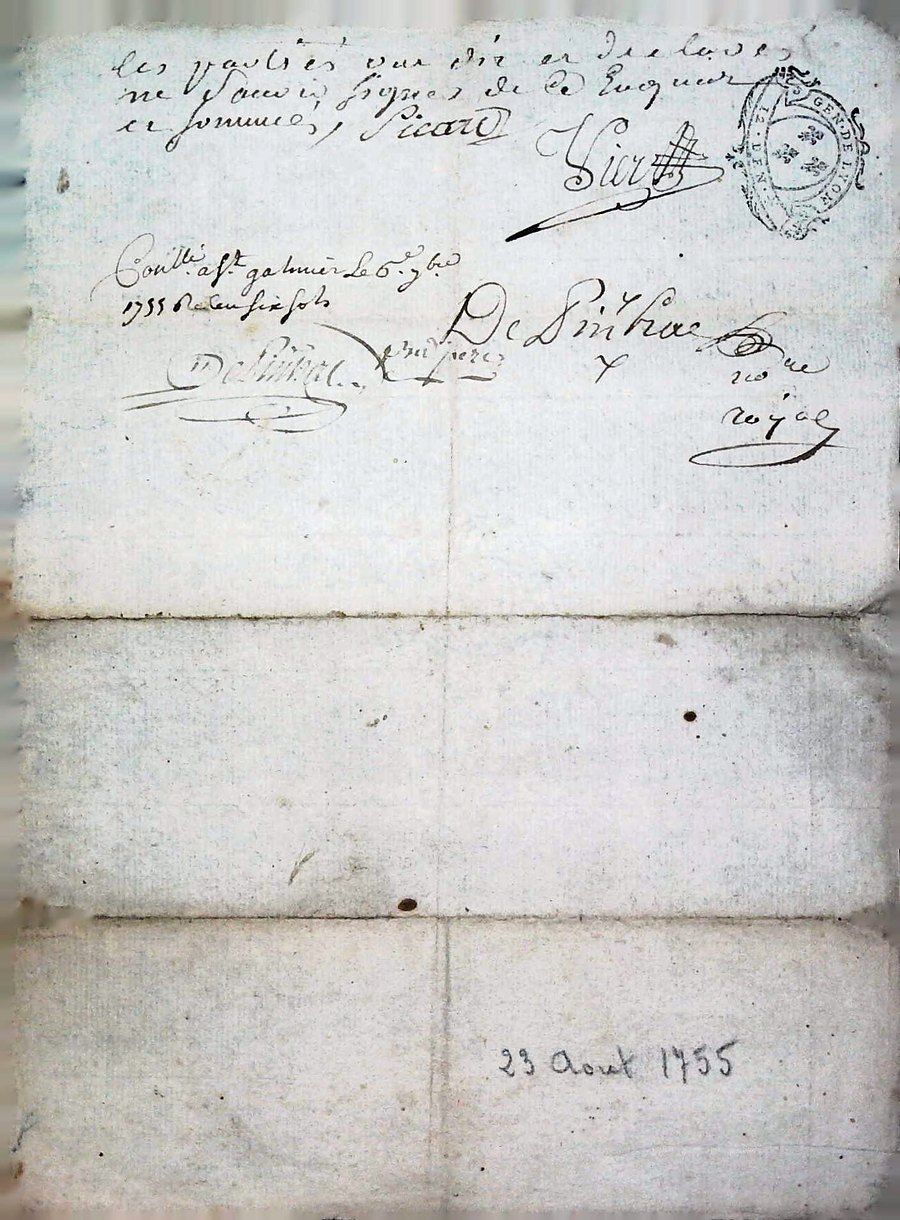 les parties ont dit et declare
ne Scavoir signer de ce Enquis
et sommes, Picard
GEN. DE LYON
12. DEN.
Coullé a St. galmier Le 6e. 7bre
1755 Reçu six sols
De Pinhac
De Pinhac
no re
royal
23 Aout 1755